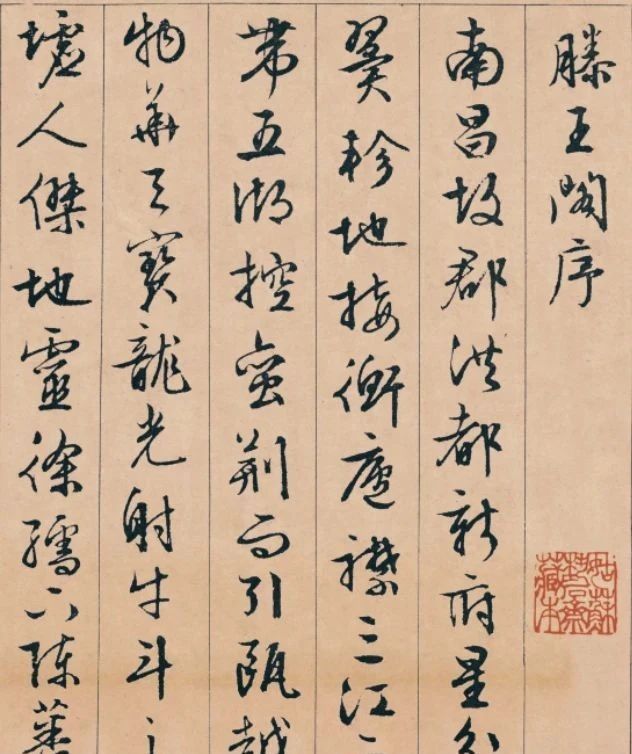 滕王閣序
南昌故郡洪都新府星分
翼軫地接衡廬襟三江
帶五湖控蠻荊而引甌越
物華天寶龍光射牛斗之
墟人傑地靈徐孺下陳蕃